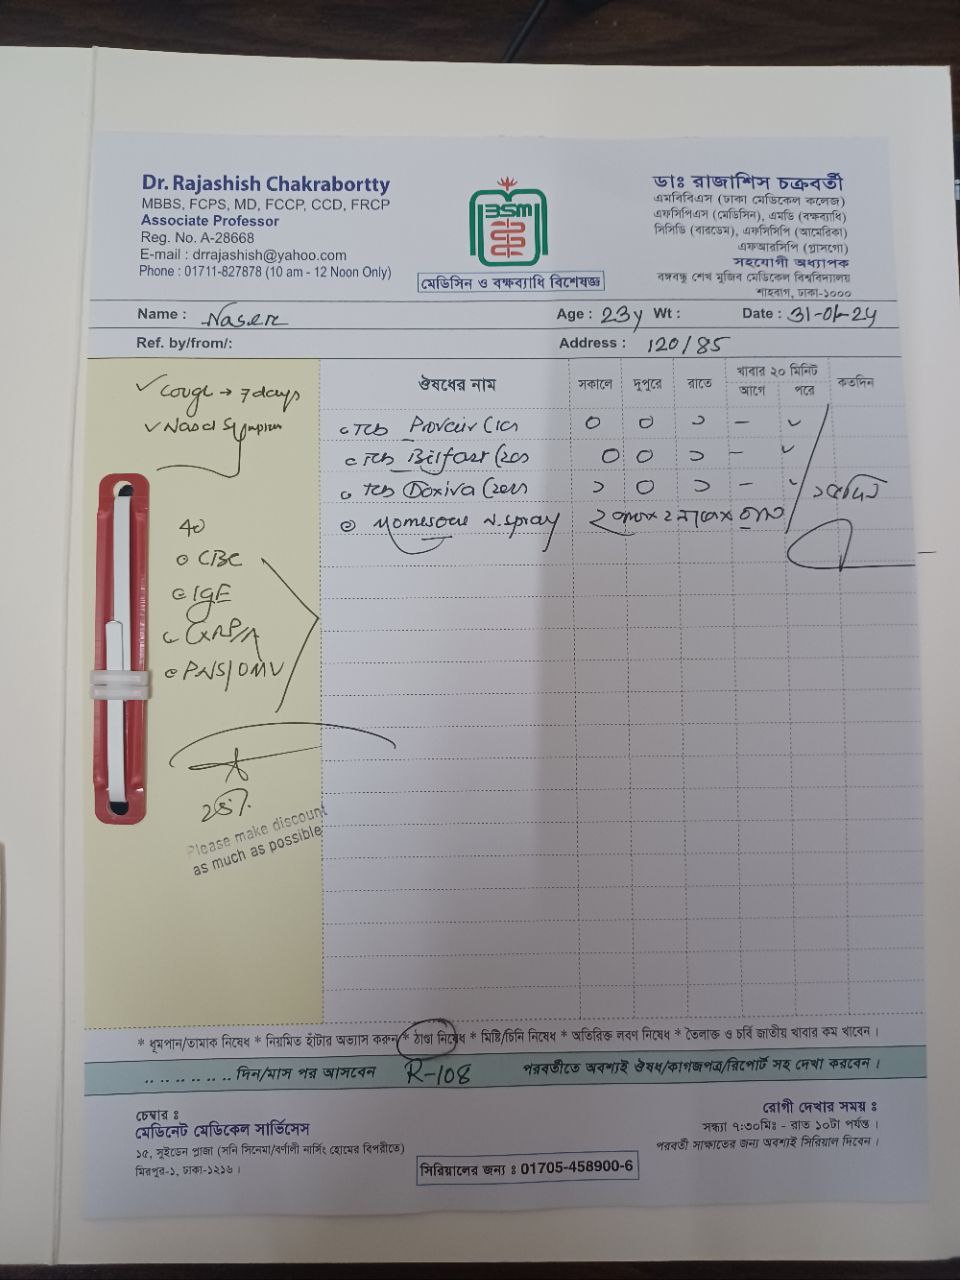 Dr. Rajashish Chakrabortty
MBBS, FCPS, MD, FCCP, CCD, FRCP
Associate Professor
Reg. No. A-28668
E-mail : drrajashish@yahoo.com
Phone : 01711-827878 (10 am - 12 Noon Only)
BSM
মেডিসিন ও বক্ষব্যাধি বিশেষজ্ঞ
ডাঃ রাজাশিস চক্রবর্তী
এমবিবিএস (ঢাকা মেডিকেল কলেজ)
এফসিপিএস (মেডিসিন), এমডি (বক্ষব্যাধি)
সিসিডি (বারডেম), এফসিসিপি (আমেরিকা)
এফআরসিপি (গ্লাসগো)
সহযোগী অধ্যাপক
বঙ্গবন্ধু শেখ মুজিব মেডিকেল বিশ্ববিদ্যালয়
শাহবাগ, ঢাকা-১০০০
Name : Age : 23y Wt : Date : 31-01-24
Ref. by/from/: Address : 120/85
Cough → 7 days
Nasal
CBC
IgE
PNS/OMV
25%
Please make discount
as much as possible
ঔষধের নাম সকালে দুপুরে রাতে খাবার ২০ মিনিট আগে পরে কতদিন
Tab 0 0 ১ -
Tab 0 0 ১ -
Tab Doxiva ১ 0 ১ -
N. Spray
* ধূমপান/তামাক নিষেধ * নিয়মিত হাঁটার অভ্যাস করুন * ঠান্ডা নিষেধ * মিষ্টি/চিনি নিষেধ * অতিরিক্ত লবণ নিষেধ * তৈলাক্ত ও চর্বি জাতীয় খাবার কম খাবেন।
.. .. .. .. .. .. .. দিন/মাস পর আসবেন R-108 পরবর্তীতে অবশ্যই ঔষধ/কাগজপত্র/রিপোর্ট সহ দেখা করবেন।
চেম্বার ঃ
মেডিনেট মেডিকেল সার্ভিসেস
১৫, সুইডেন প্লাজা (সনি সিনেমা/বর্ণালী নার্সিং হোমের বিপরীতে)
মিরপুর-১, ঢাকা-১২১৬।
সিরিয়ালের জন্য ঃ 01705-458900-6
রোগী দেখার সময় ঃ
সন্ধ্যা ৭:৩০মিঃ - রাত ১০টা পর্যন্ত।
পরবর্তী সাক্ষাতের জন্য অবশ্যই সিরিয়াল দিবেন।